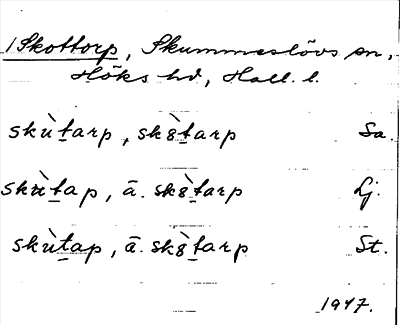 1 Skottorp, Skummeslövs sn,
Höks hd, Hall. l.
skùt̲arp, sk8̀t̲arp Sa.
skùt̲ap, ä. sk8̀t̲arp Lj.
skùt̲ap, ä. sk8̀t̲arp St.
1947.